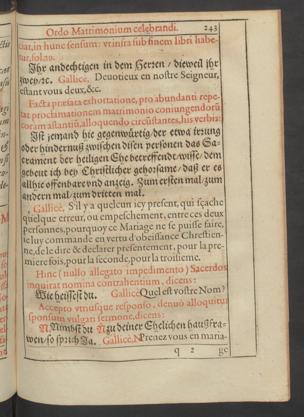 Ordo Matrimonium celebrandi. 243
tiat, in hunc sensum: vt infra sub finem libri habe-
tur, fol.
Ihr andechtigen in dem Herren / dieweil ihr
zwey / rc. Gallicè, Deuotieux en nostre Seigneur,
estant vous deux, &c.
Facta præfata exhortatione, pro abundanti repe-
tat proclamationem matrimonio coniungendorũ
coram astantiũ, alloquendo circũstantes, his verbis:
Ist jemand hie gegenwürtig / der etwa irrung
oder hindernuß zwischen disen personen das Sa-
crament der heiligen Ehe betreffendt / wisse / dem
gebeut ich bey Christlicher gehorsame / daß er es
allhie offenbare vnd anzeig. Zum ersten mal / zum
andern mal / zum dritten mal.
Gallicè, S'il y a quelcun icy present, qui sçache
quelque erreur, ou empeschement, entre ces deux
personnes, pourquoy ce Mariage ne se puisse faire,
ie luy commande en vertu d'obeissance Chrestien-
ne, de le dire & declarer presentement, pour la pre-
miere fois, pour la seconde, pour la troisieme.
Hinc (nullo allegato impedimento) Sacerdos
inquirat nomina contrahentium, dicens:
Wie heissest du. Gallicè Quel est vostre Nom?
Accepto vtriusque responso, denuò alloquitur
sponsum vulgari sermone, dicens:
N. Nimbst du N. zu deiner Ehelichen haußfra-
wen / so sprich Ja. Gallicè, N. Prenez vous en maria-
q 2 ge